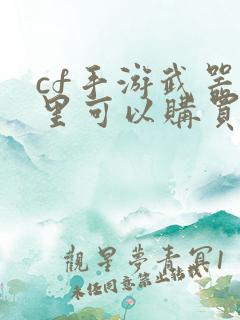 cf手游武器
里可以購買
觀星夢春冥1
未经同意禁止转载